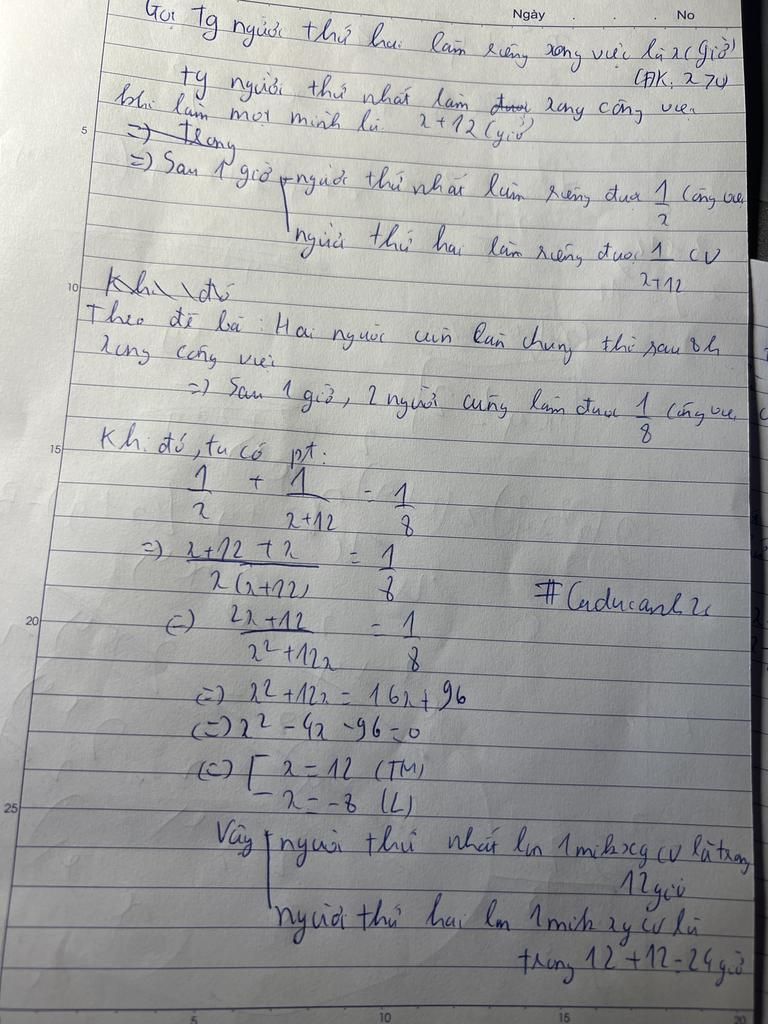 Ngày . . . No
Gọi Tg người thứ hai làm riêng xong việc là x (giờ)
(ĐK: x>0)
tg người thứ nhất làm được xong công việc
khi làm một mình là x+12 (giờ)
5
=> trong
=> Sau 1 giờ người thứ nhất làm riêng được 1/x công việc
người thứ hai làm riêng được 1/x+12 CV
10
Khi đó
Theo đề bà : Hai người cùn làn chung thì sau 8h
xong công việc
=> Sau 1 giờ, 2 người cùng làm được 1/8 công việc
15
Khi đó, ta có pt:
1/x + 1/x+12 = 1/8
=> x+12+x/x(x+12) = 1/8
# Caducanh2s
20
(=) 2x+12/x²+12x = 1/8
(=) x²+12x = 16x+96
(=) x² - 4x - 96 = 0
(=) [ x = 12 (TM)
x = -8 (L)
25
Vậy người thứ nhất lm 1 mik xg cv là trong
12 giờ
người thứ hai lm 1 mik xg cv là
trong 12+12=24 giờ
5 10 15 20